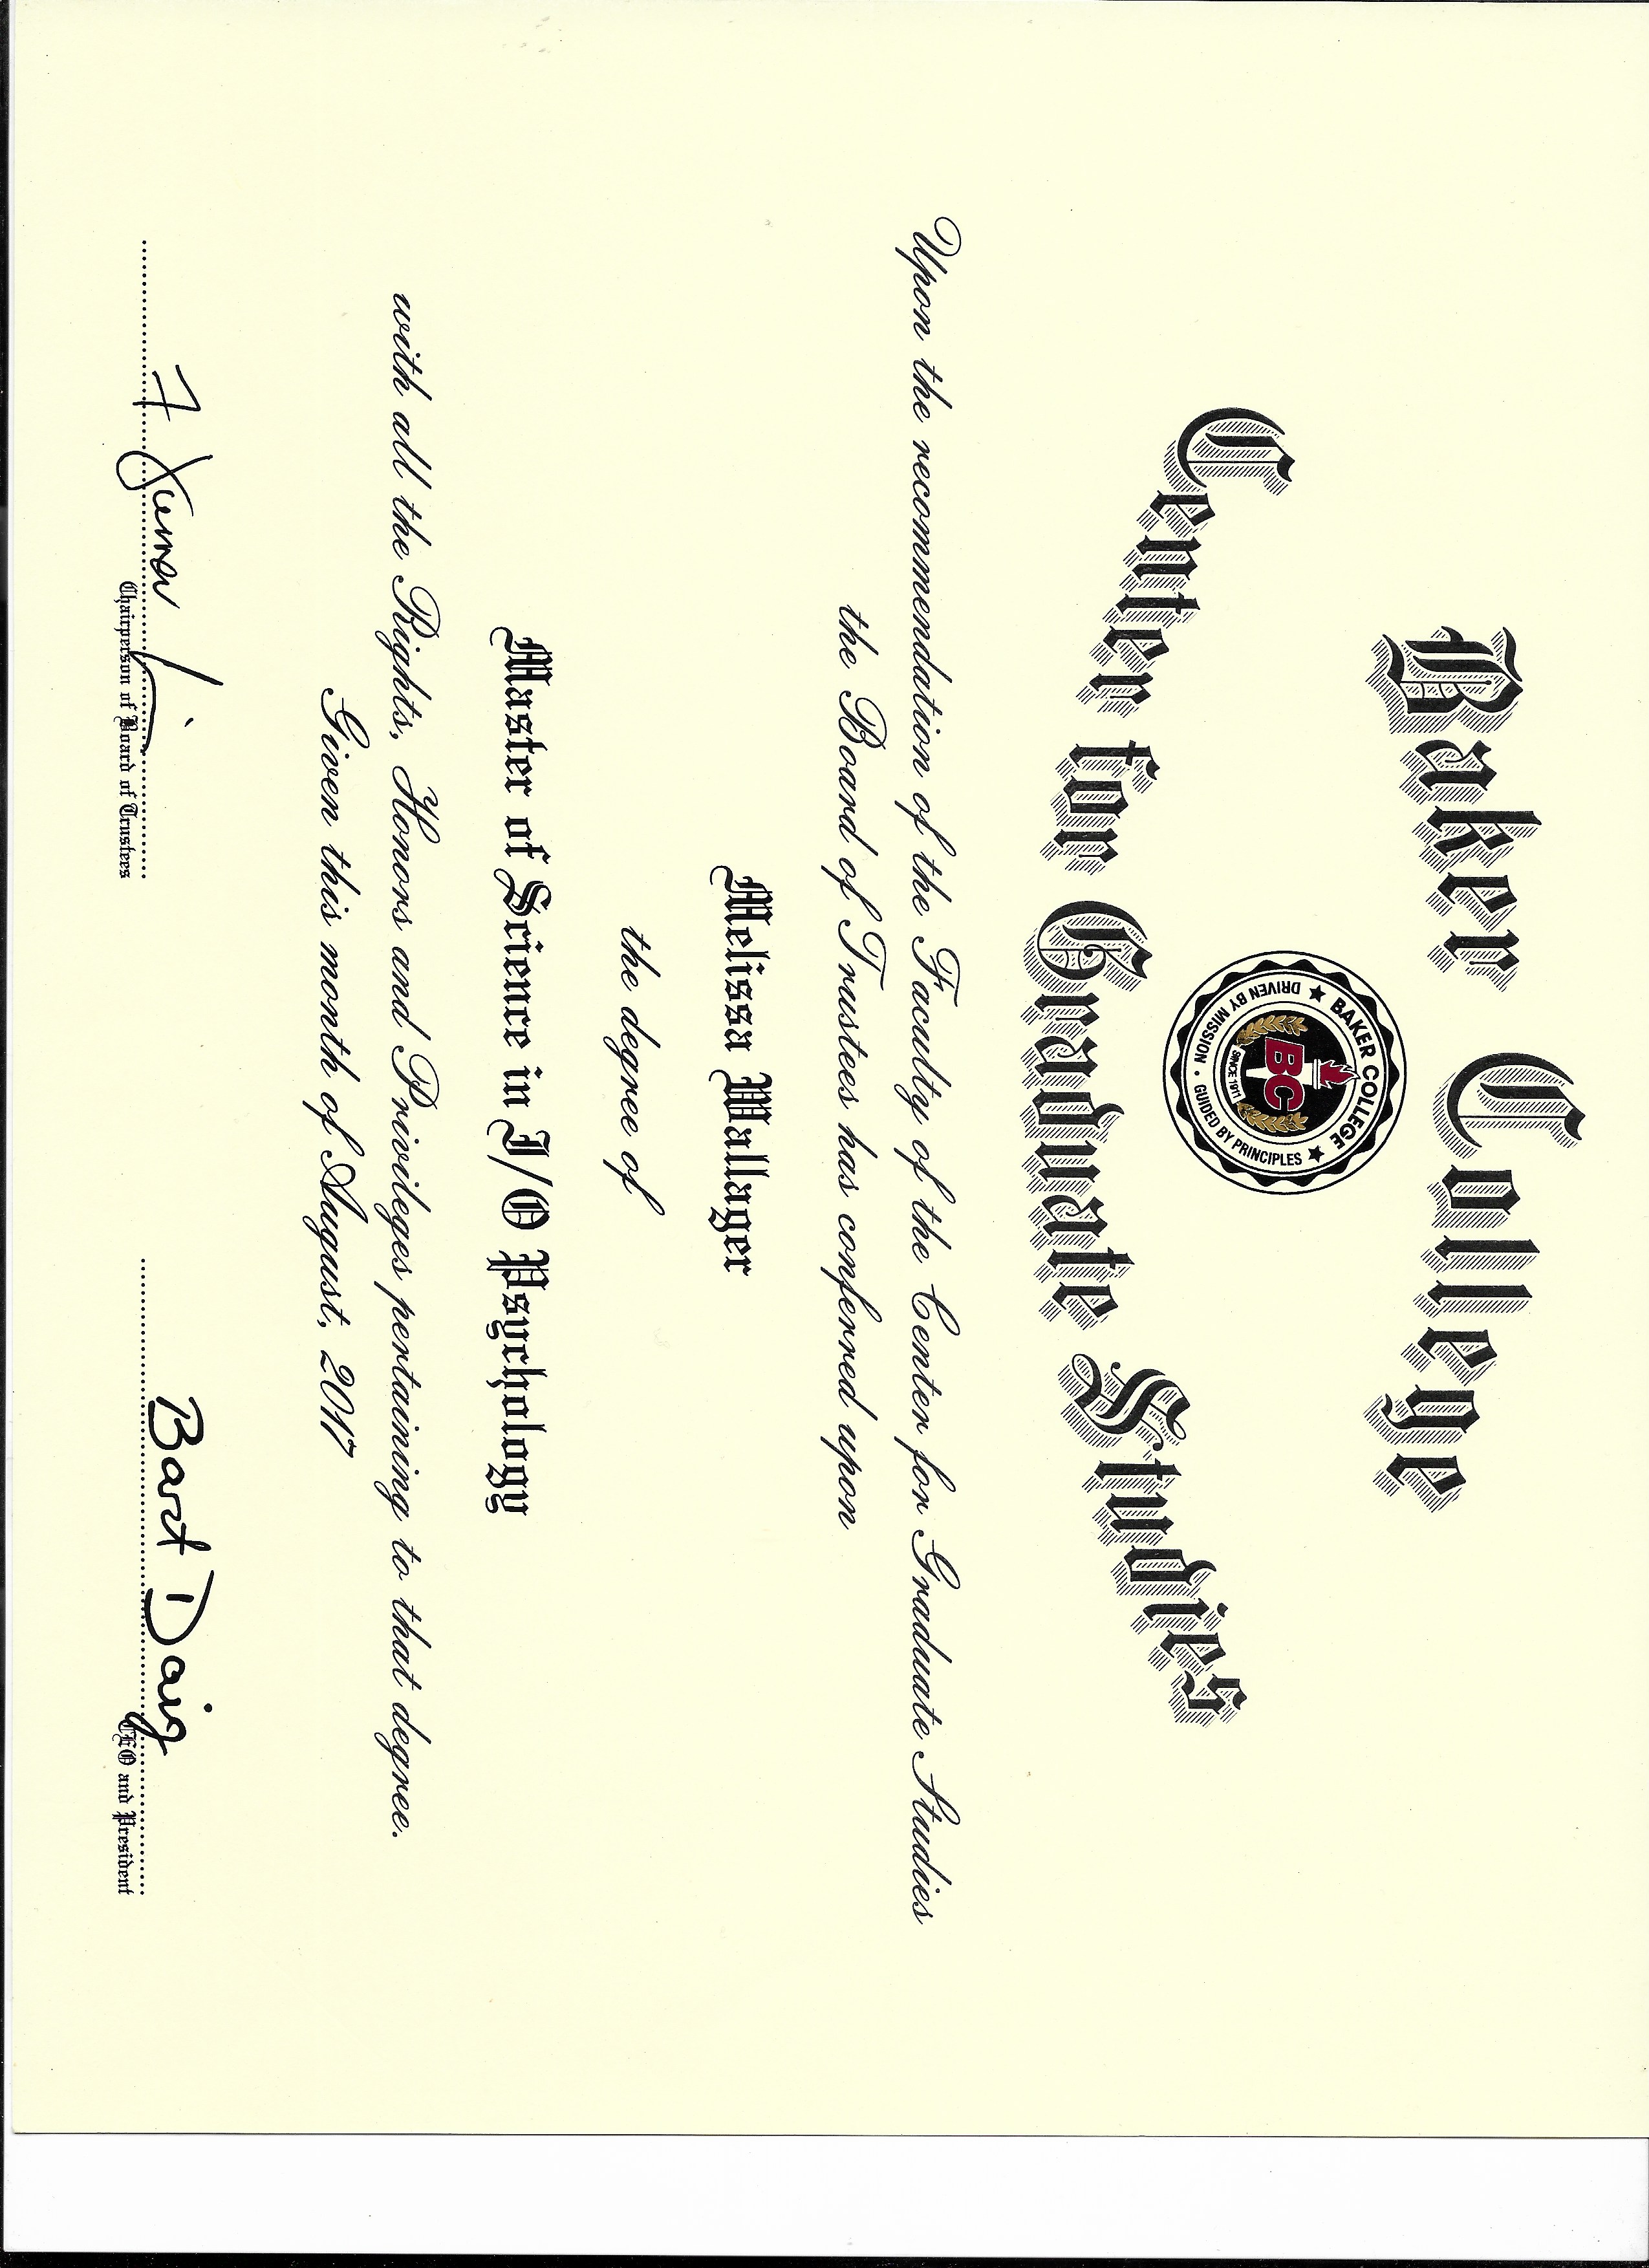 Baker College
BAKER COLLEGE
BC
SINCE 1911
DRIVEN BY MISSION · GUIDED BY PRINCIPLES
Center for Graduate Studies
Upon the recommendation of the Faculty of the Center for Graduate Studies
the Board of Trustees has conferred upon
Melissa Wallager
the degree of
Master of Science in I/O Psychology
with all the Rights, Honors and Privileges pertaining to that degree.
Given this month of August, 2017
Bart Daig
Chairperson of Board of Trustees
CEO and President